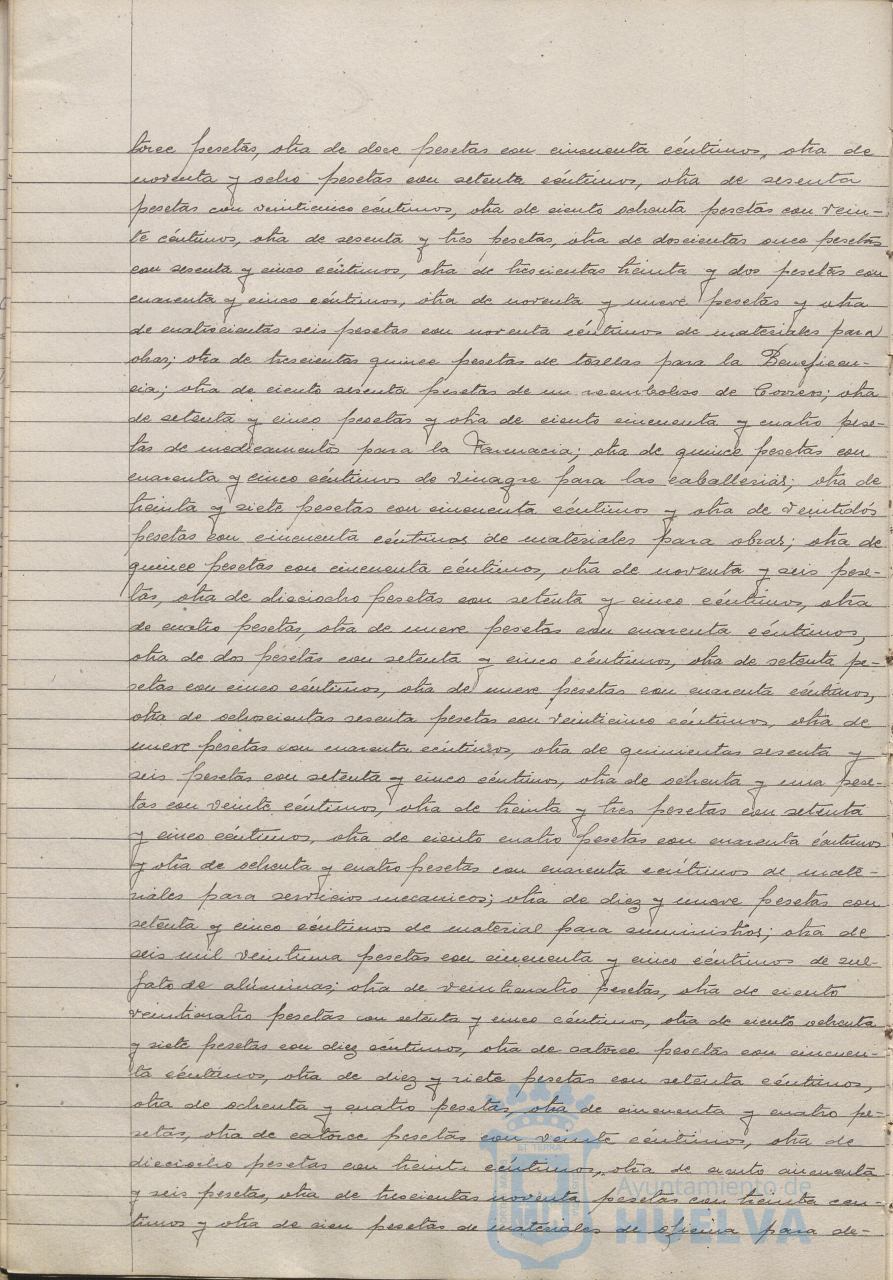 torce pesetas, otra de doce pesetas con cincuenta céntimos, otra de
noventa y ocho pesetas con setenta céntimos, otra de sesenta
pesetas con veinticinco céntimos, otra de ciento ochenta pesetas con vein-
te céntimos, otra de sesenta y tres pesetas, otra de doscientas once pesetas
con sesenta y cinco céntimos, otra de trescientas treinta y dos pesetas con
cuarenta y cinco céntimos, otra de noventa y nueve pesetas y otra
de cuatrocientas seis pesetas con noventa céntimos de materiales para
obras; otra de trescientas quince pesetas de toallas para la Beneficen-
cia; otra de ciento sesenta pesetas de un reembolso de Correos; otra
de setenta y cinco pesetas y otra de ciento cincuenta y cuatro pese-
tas de medicamentos para la Farmacia; otra de quince pesetas con
cuarenta y cinco céntimos de vinagre para las caballerias; otra de
treinta y siete pesetas con cincuenta céntimos y otra de veintidós
pesetas con cincuenta céntimos de materiales para obras; otra de
quince pesetas con cincuenta céntimos, otra de noventa y seis pese-
tas, otra de dieciocho pesetas con setenta y cinco céntimos, otra
de cuatro pesetas, otra de nueve pesetas con cuarenta céntimos,
otra de dos pesetas con setenta y cinco céntimos, otra de setenta pe-
setas con cinco céntimos, otra de nueve pesetas con cuarenta céntimos,
otra de ochocientas sesenta pesetas con veinticinco céntimos, otra de
nueve pesetas con cuarenta céntimos, otra de quinientas sesenta y
seis pesetas con setenta y cinco céntimos, otra de ochenta y una pese-
tas con veinte céntimos, otra de treinta y tres pesetas con setenta
y cinco céntimos, otra de ciento cuatro pesetas con cuarenta céntimos
y otra de ochenta y cuatro pesetas con cuarenta céntimos de mate-
riales para servicios mecanicos; otra de diez y nueve pesetas con
setenta y cinco céntimos de material para suministros; otra de
seis mil veintiuna pesetas con cincuenta y cinco céntimos de sul-
fato de alúminas; otra de veinticuatro pesetas, otra de ciento
veinticuatro pesetas con setenta y cinco céntimos, otra de ciento ochenta
y siete pesetas con diez céntimos, otra de catorce pesetas con cincuen-
ta céntimos, otra de diez y siete pesetas con setenta céntimos,
otra de ochenta y cuatro pesetas, otra de cincuenta y cuatro pe-
setas, otra de catorce pesetas con veinte céntimos, otra de
dieciocho pesetas con treinta céntimos, otra de ciento cincuenta
y seis pesetas, otra de trescientas noventa pesetas con treinta cén-
timos y otra de cien pesetas de materiales de oficina para de-
Ayuntamiento de
HUELVA